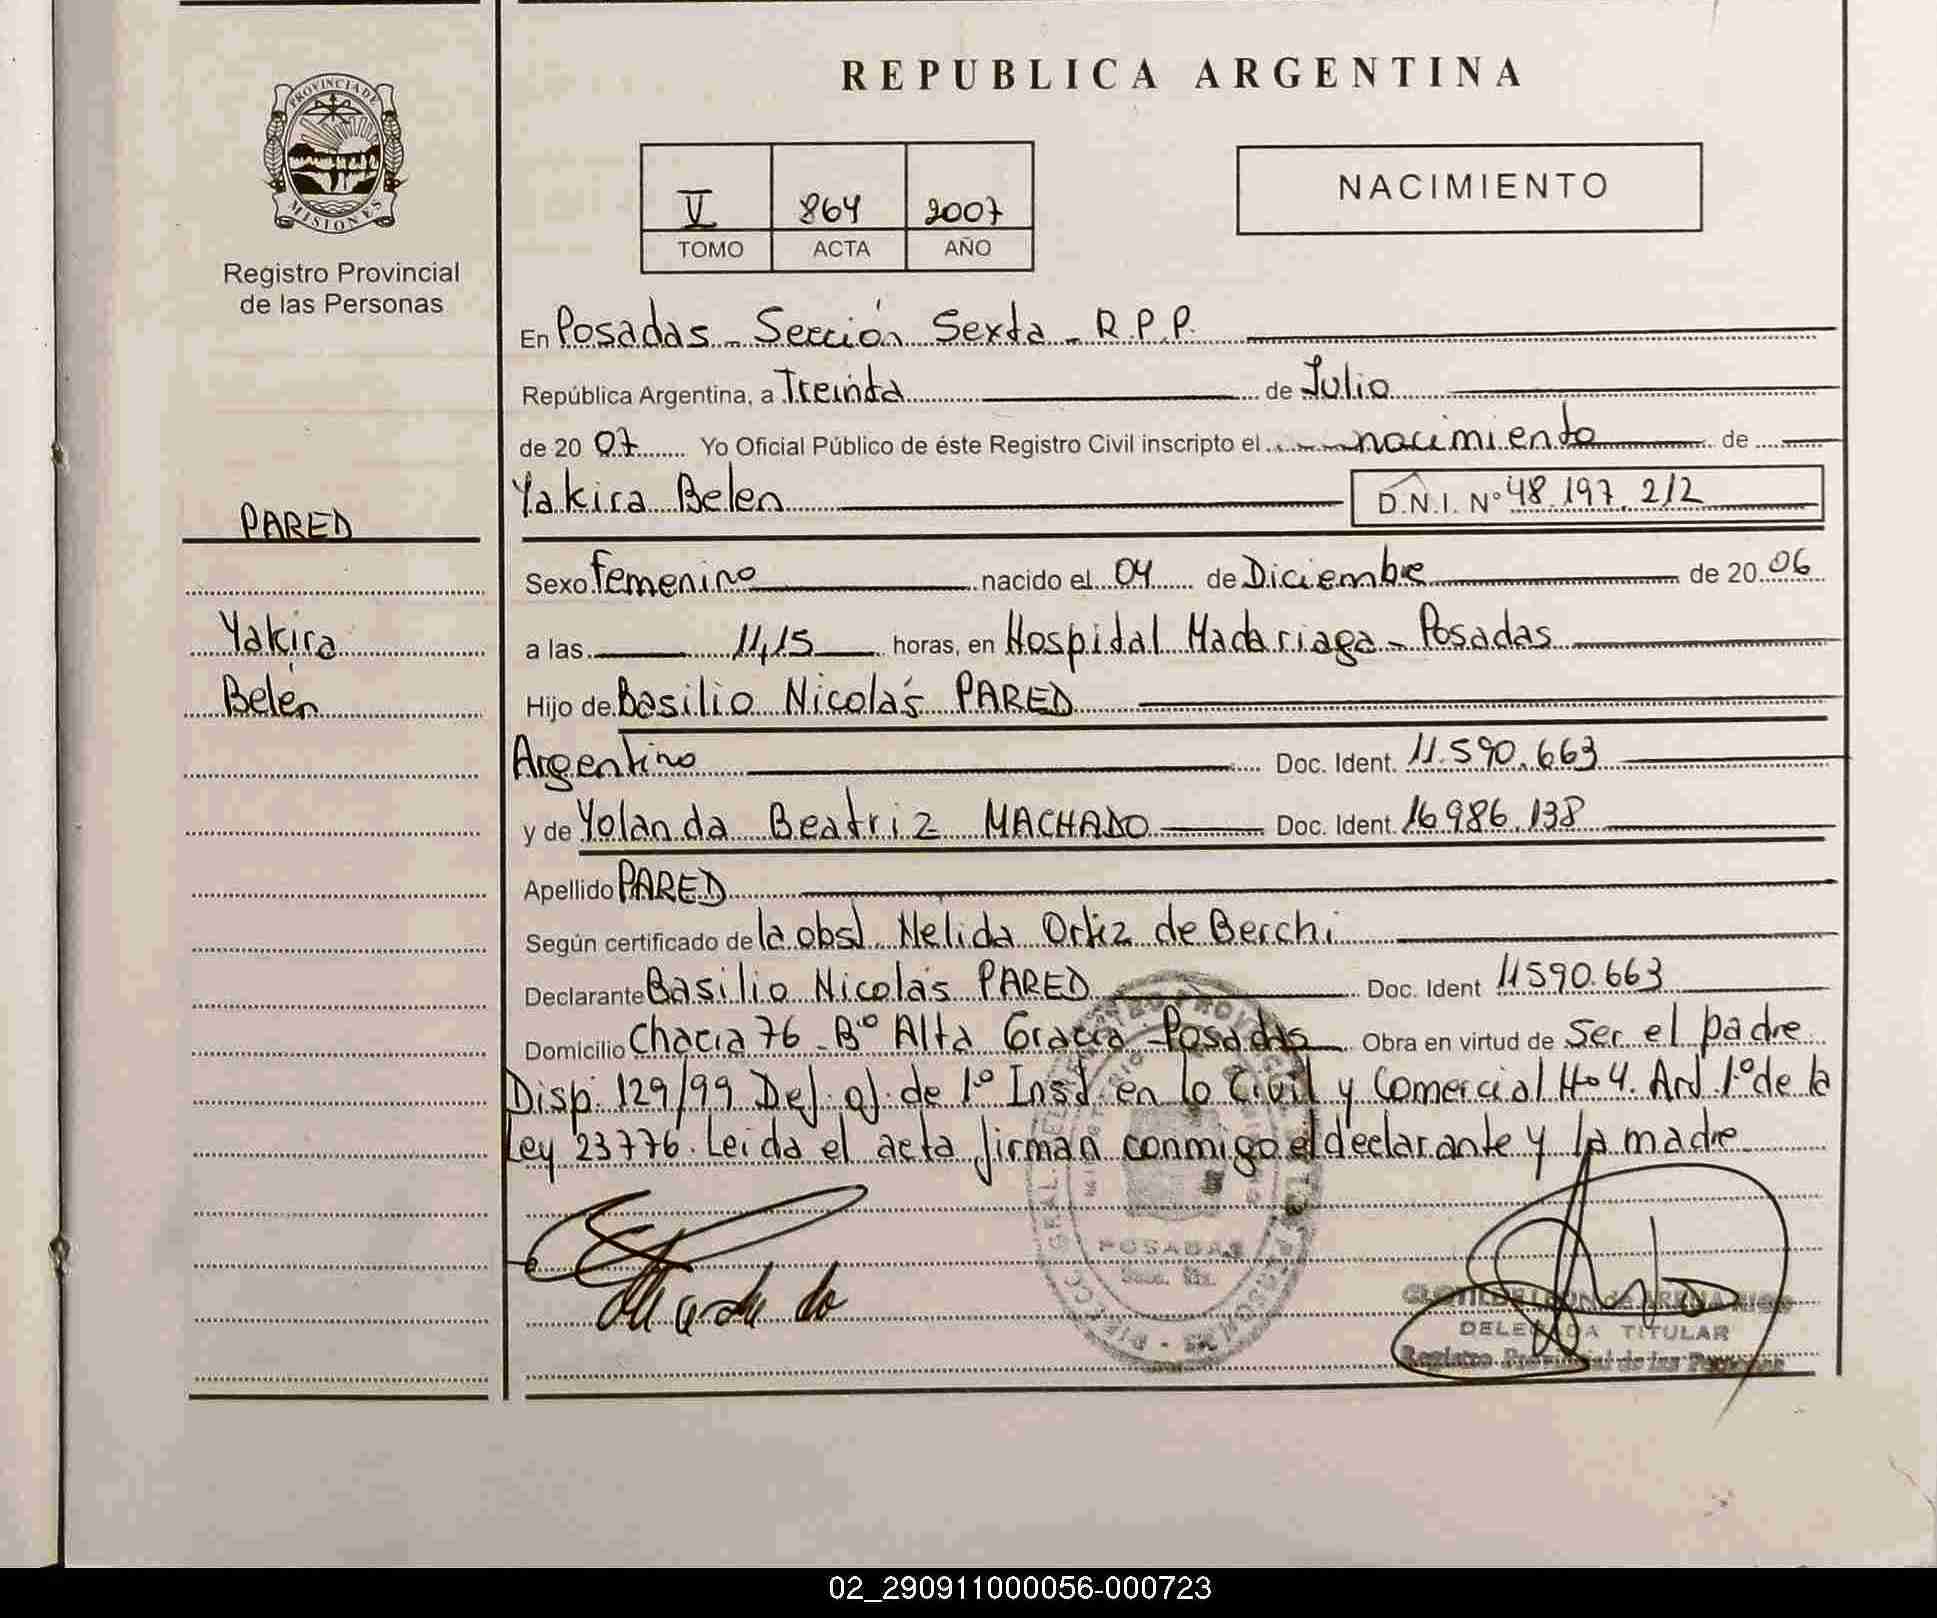 PROVINCIA DE
MISIONES
Registro Provincial
de las Personas
REPUBLICA ARGENTINA
V 864 2007
TOMO ACTA AÑO
NACIMIENTO
En Posadas - Sección Sexta - R.P.P.
República Argentina, a Treinta de Julio
de 20 07 Yo Oficial Público de éste Registro Civil inscripto el nacimiento de
Yakira Belen D.N.I. Nº 48.197.212
PARED
Sexo femenino nacido el 04 de Diciembre de 20 06
Yakira
a las 11,15 horas, en Hospital Madariaga - Posadas
Belén
Hijo de Basilio Nicolás PARED
Argentino Doc. Ident. 11.590.663
y de Yolanda Beatriz MACHADO Doc. Ident. 16986.138
Apellido PARED
Según certificado de la obst. Nelida Ortiz de Berchi
Declarante Basilio Nicolás PARED Doc. Ident 11590.663
Domicilio Chacra 76 - Bº Alta Gracia - Posadas Obra en virtud de Ser el padre
Disp. 129/99 Def. of. de 1º Inst. en lo Civil y Comercial Nº 4. Art. 1º de la
Ley 23776. Leida el acta firman conmigo el declarante y la madre
Machado
POSADAS
DELEGADA TITULAR
Registro Provincial de las Personas
02_290911000056-000723